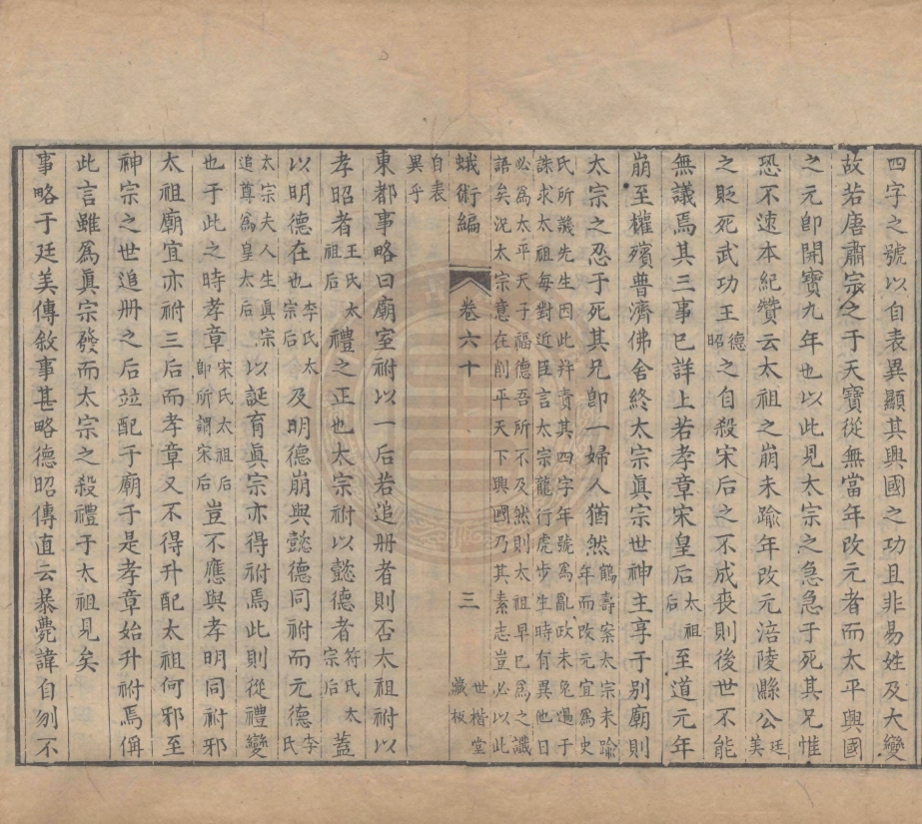 四字之號以自表異顯其興國之功且非易姓及大變
故若唐肅宗之于天寶從無當年改元者而太平興國
之元卽開寶九年也以此見太宗之急急于死其兄惟
恐不速本紀贊云太祖之崩未踰年改元涪陵縣公廷美
之貶死武功王德昭之自殺宋后之不成喪則後世不能
無議焉其三事已詳上若孝章宋皇后太祖后至道元年
崩至權殯普濟佛舍終太宗眞宗世神主享于別廟則
太宗之忍于死其兄卽一婦人猶然鶴壽案太宗未踰年而改元宜爲史
氏所譏先生因此幷責其四字年號爲亂政未免過于
誅求太祖每對近臣言太宗龍行虎步生時有異他日
必爲太平天子福德吾所不及然則太祖早已爲之讖
語矣況太宗意在削平天下興國乃其素志豈必以此
蛾術編 卷六十 三 世楷堂藏板
自表異乎
東都事略曰廟室祔以一后若追册者則否太祖祔以
孝昭者王氏太祖后禮之正也太宗祔以懿德者符氏太宗后蓋
以明德在也李氏太宗后及明德崩與懿德同祔而元德李氏
太宗夫人生眞宗追尊爲皇太后以誕育眞宗亦得祔焉此則從禮變
也于此之時孝章宋氏太祖后卽所謂宋后豈不應與孝明同祔邪
太祖廟宜亦祔三后而孝章又不得升配太祖何邪至
神宗之世追册之后竝配于廟于是孝章始升祔焉偁
此言雖爲眞宗發而太宗之殺禮于太祖見矣
事略于廷美傳敘事甚略德昭傳直云暴薨諱自刎不